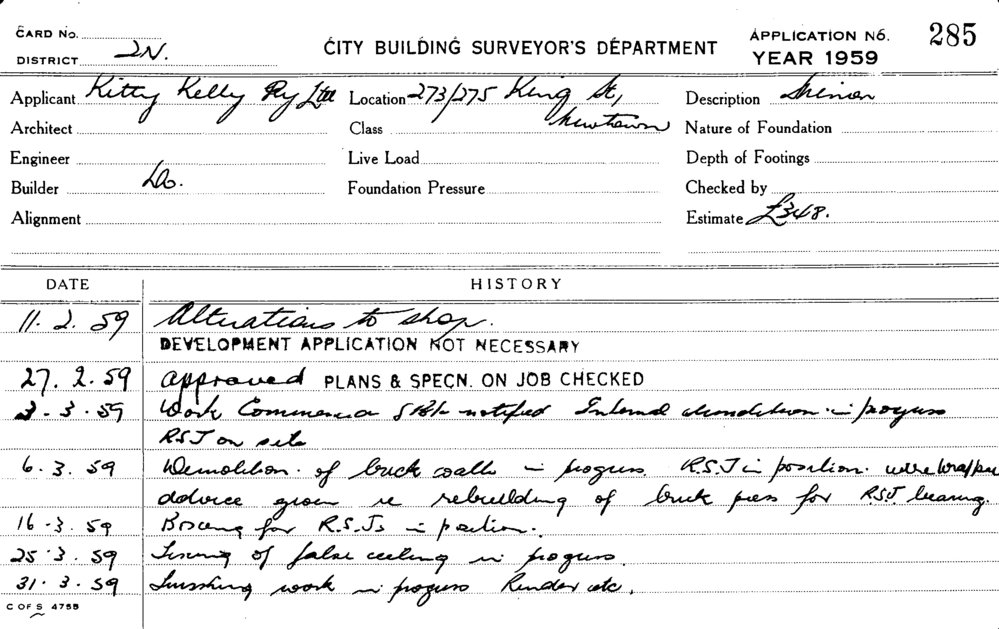 CARD No.
DISTRICT 2N.
CITY BUILDING SURVEYOR'S DEPARTMENT
APPLICATION No. 285
YEAR 1959
Applicant Kitty Kelly Pty Ltd Location 273/275 King St, Description
Architect Class Newtown Nature of Foundation
Engineer Live Load Depth of Footings
Builder Do. Foundation Pressure Checked by
Alignment Estimate £348.
DATE HISTORY
11. 2. 59 Alterations to shop.
DEVELOPMENT APPLICATION NOT NECESSARY
27. 2. 59 approved PLANS & SPECN. ON JOB CHECKED
3 - 3 - 59 Work Commenced notified Internal demolition in progress
RSJ on site
6. 3. 59 Demolition of brick walls in progress R.S.J in position. wire wrapped
advice given re rebuilding of brick piers for RSJ bearing.
16 - 3. 59 Boxing for R.S.Js in position.
25. 3. 59 Fixing of false ceiling in progress.
31. 3. 59 Finishing work in progress Render etc.
C OF S 4755